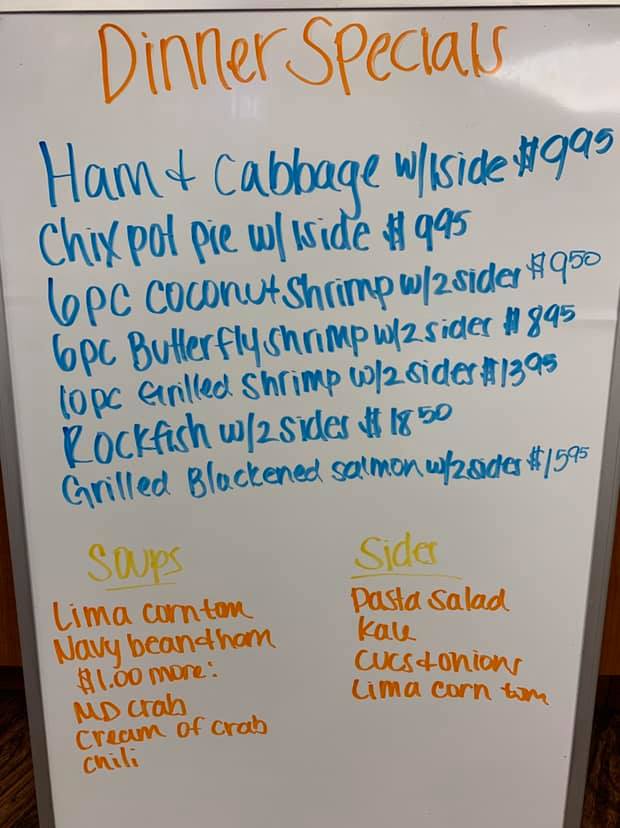 Dinner Specials
Ham + Cabbage w/1side $9.95
Chix pot pie w/1side $9.95
6pc Coconut Shrimp w/2 sides $9.50
6pc Butterfly shrimp w/2 sides $8.95
10pc Grilled Shrimp w/2 sides $13.95
Rockfish w/2 sides $18.50
Grilled Blackened salmon w/2 sides $15.95
Soups
Lima corn tom
Navy bean + ham
$1.00 more:
MD crab
Cream of crab
chili
Sides
Pasta Salad
Kale
cucs + onions
Lima corn tom